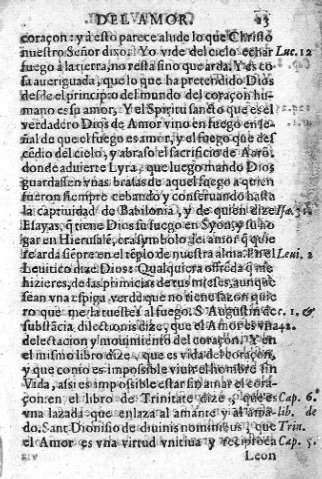 DEL AMOR. 23
coraçon: y a esto parece alude lo que Christo
nuestro Señor dixo. Yo vide del cielo echar Luc. 12
fuego a la tierra, no resta sino que arda. Y es co
sa aueriguada, que lo que ha pretendido Dios
desde el principio del mundo del coraçon hu-
mano es su amor. Y el Spiritu sancto que es el
verdadero Dios de Amor vino en fuego en se-
ñal de que el fuego es amor, y el fuego que des
cēdio del cielo, y abraso el sacrificio de Aarō,
donde aduierte Lyra, que luego mando Dios
guardassen vnas brasas de aquel fuego a quien
fueron siempre cebando y conseruando hasta
la captiuidad de Babilonia, y de quien dize Isa. 31.
Esayas, q̄ tiene Dios su fuego en Syon, y su ho
gar en Hierusalē, era symbolo del amor q̄ quie
re arda siēpre en el tēplo de nuestra alma. En el Leui. 2
Leuitico dize Dios: Qualquiera ofrēda q̄ me
hizieres, de las primicias de tus mieses, aunque
sean vna espiga verde que no tiene sazon quie
ro que me la tuestes al fuego. S. Augustin de r. 1. &
substācia dilectionis dize, que el Amor es vna 42.
delectacion y mouimiento del coraçon. Y en
el mismo libro dize, que es vida del coraçon,
y que como es impossible viuir el hombre sin
Vida, assi es impossible estar sin amar el cora-
çon: en el libro de Trinitate dize, que es Cap. 6.
vna lazada que enlaza al amante y al ama- lib. de
do. Sant Dionisio de diuinis nominibus, que Trin.
el Amor es vna virtud vnitiua y reciproca Cap. 5.
Leon